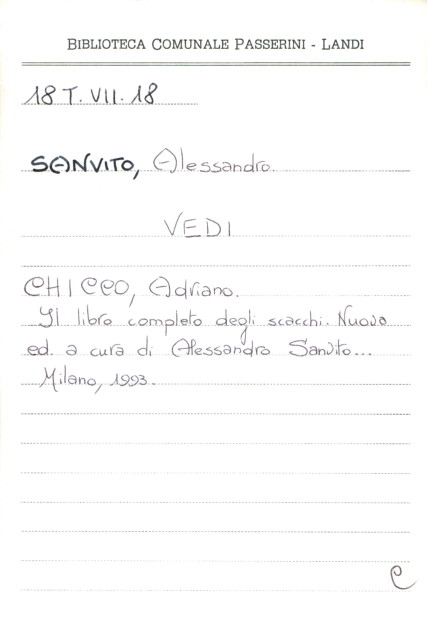 BIBLIOTECA COMUNALE PASSERINI - LANDI
18 T. VII. 18
SANVITO, Alessandro.
VEDI
CHICCO, Adriano.
Il libro completo degli scacchi. Nuova
ed. a cura di Alessandro Sanvito...
Milano, 1993.
C